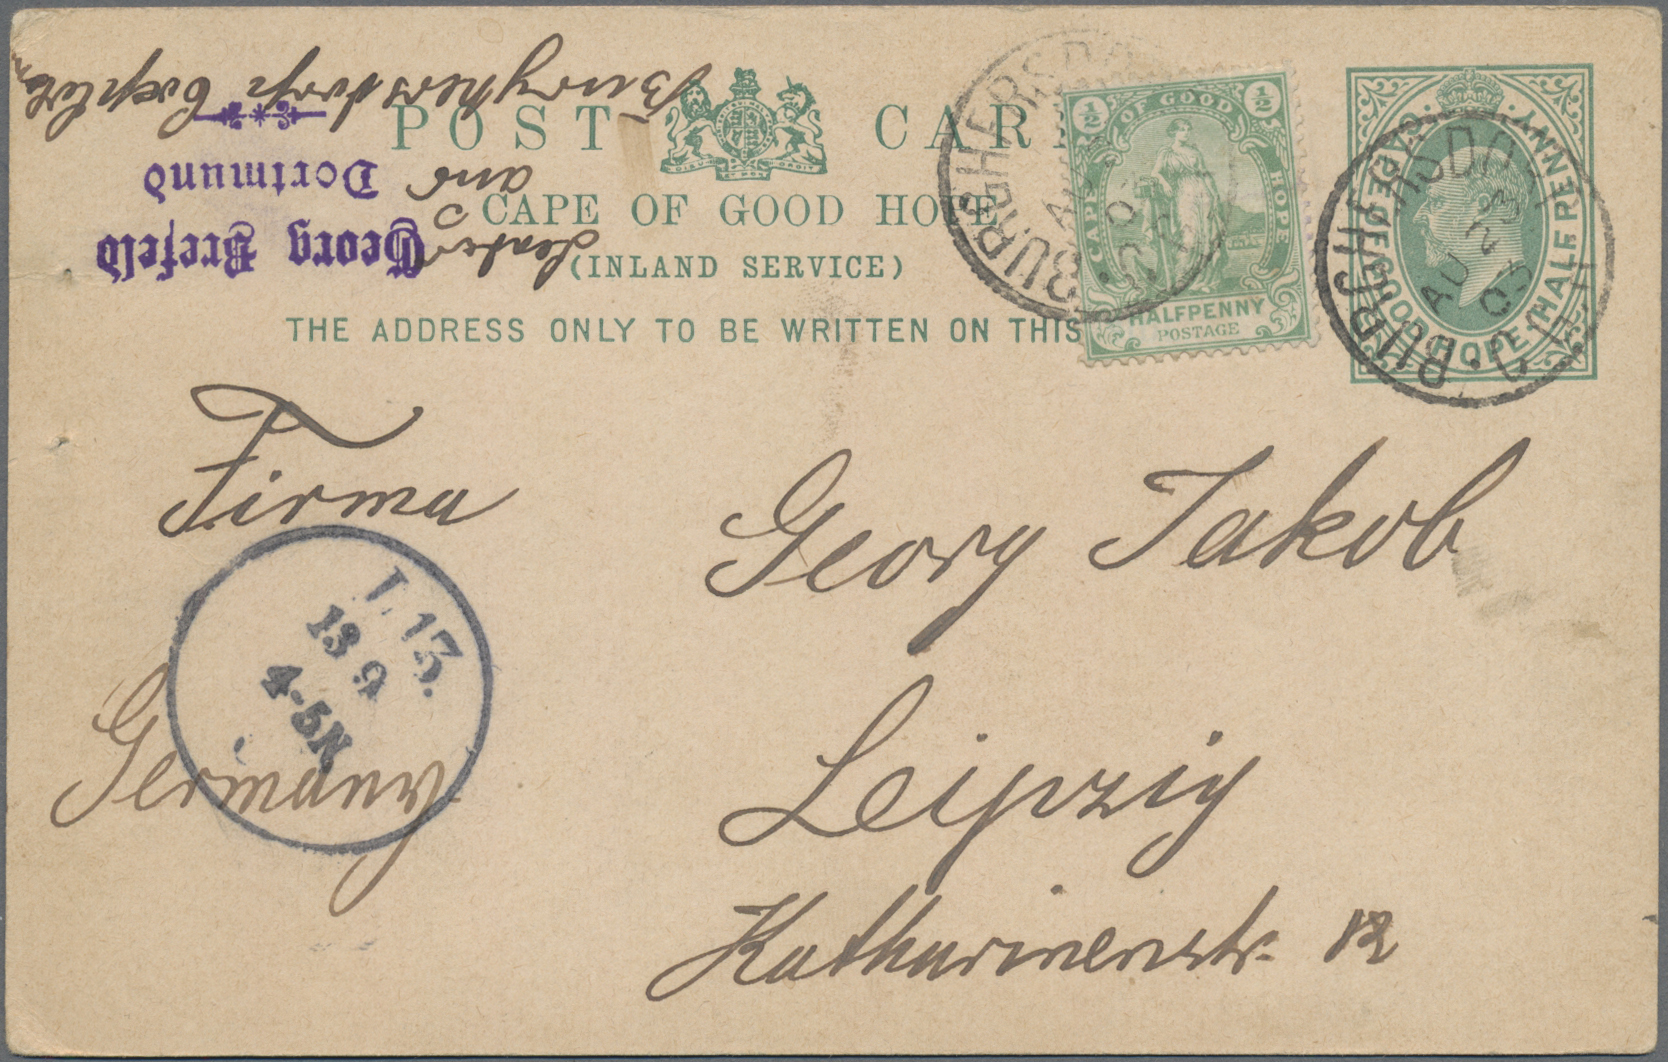 POST CAR
CAPE OF GOOD HOPE
(INLAND SERVICE)
THE ADDRESS ONLY TO BE WRITTEN ON THIS
½ ½
CAPE OF GOOD HOPE
HALFPENNY
POSTAGE
CAPE OF GOOD HOPE HALFPENNY
BURGHERSDO
AU
BURGHERSDORP
AU 23
03
Georg Brefeld
Dortmund
and
Burghersdorp
Firma
Georg Jakob
Germany
Leipzig
Katharinenstr. 12
L 13.
13 9
4-5N